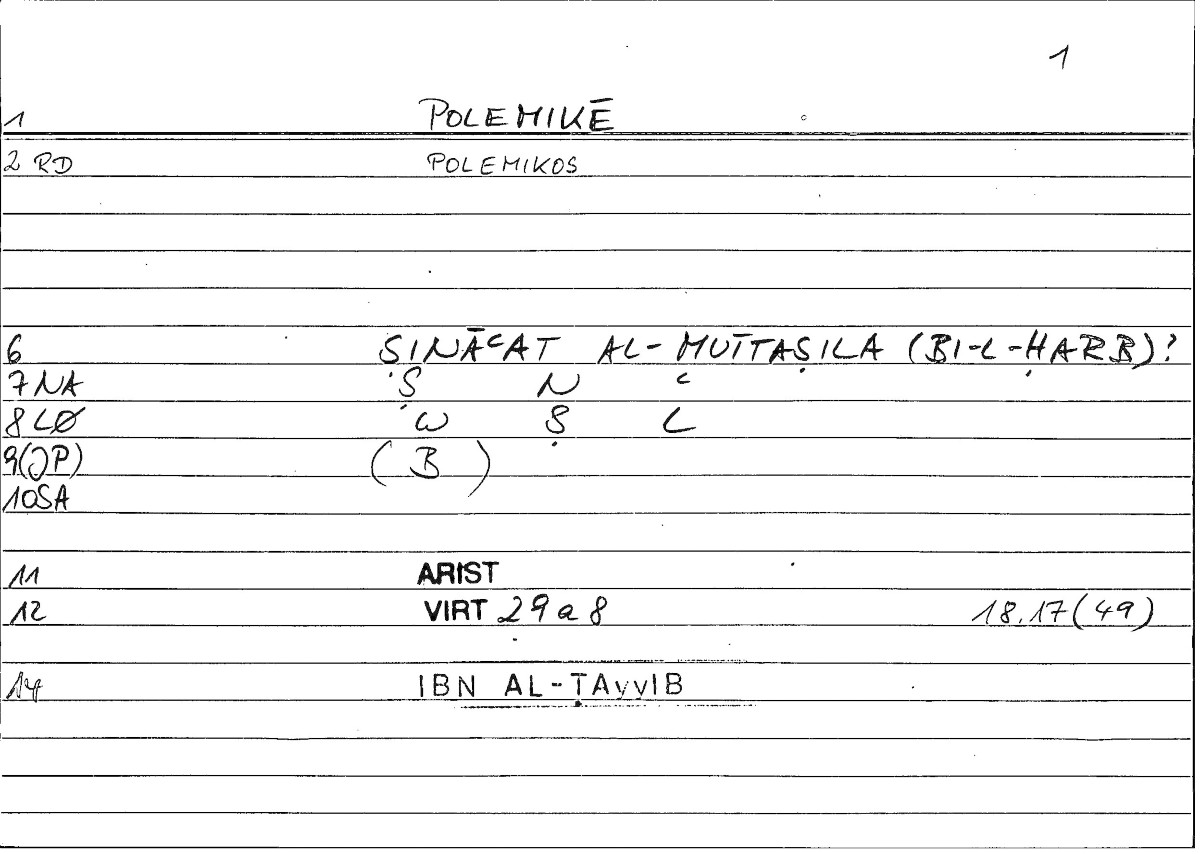 1
1 POLEMIKĒ
2 RD POLEMIKOS
6 ṢINĀʿAT AL-MUTTAṢILA (BI-L-ḤARB)?
7 NA Ṣ N ʿ
8 LØ W Ṣ L
9(JP) ( B )
10SA
11 ARIST
12 VIRT 29a8 18.17(49)
14 IBN AL-ṬAyyIB